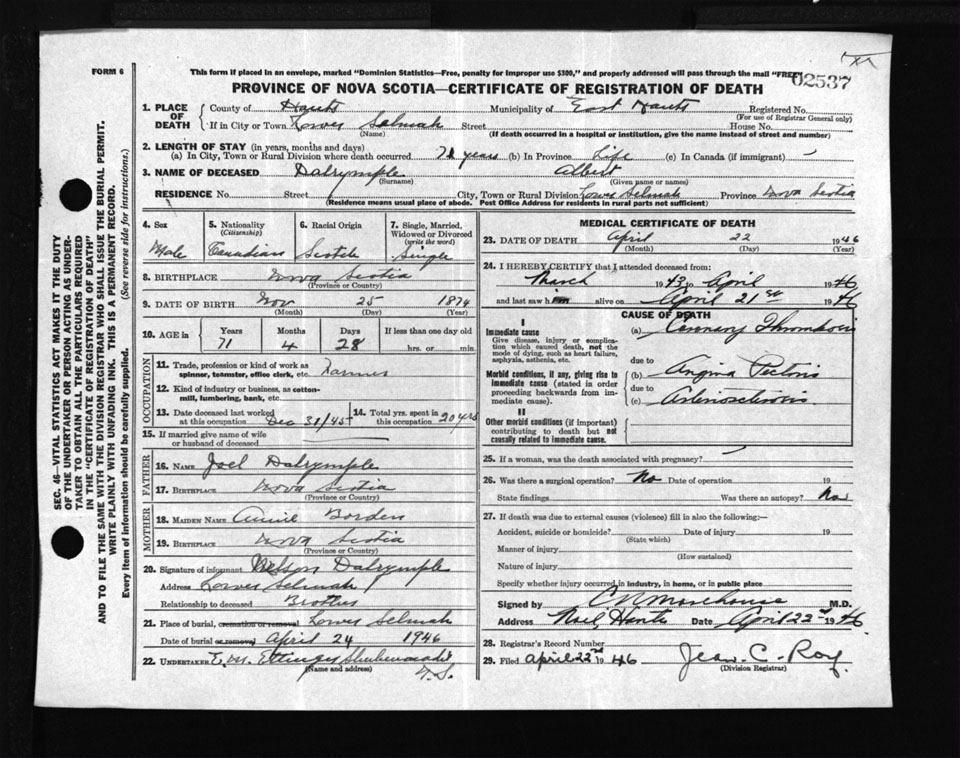 FORM 6
This form if placed in an envelope, marked "Dominion Statistics—Free, penalty for improper use $300," and properly addressed will pass through the mail "FREE"
02537
PROVINCE OF NOVA SCOTIA—CERTIFICATE OF REGISTRATION OF DEATH
SEC. 46—VITAL STATISTICS ACT MAKES IT THE DUTY
OF THE UNDERTAKER OR PERSON ACTING AS UNDER-
TAKER TO OBTAIN ALL THE PARTICULARS REQUIRED
IN THE "CERTIFICATE OF REGISTRATION OF DEATH"
AND TO FILE THE SAME WITH THE DIVISION REGISTRAR WHO SHALL ISSUE THE BURIAL PERMIT.
WRITE PLAINLY WITH UNFADING INK. THIS IS A PERMANENT RECORD.
Every item of information should be carefully supplied. (See reverse side for instructions.)
1. PLACE OF DEATH County of Hants Municipality of East Hants Registered No.
(For use of Registrar General only)
If in City or Town Lower Selmah Street House No.
(Name) (If death occurred in a hospital or institution, give the name instead of street and number)
2. LENGTH OF STAY (in years, months and days)
(a) In City, Town or Rural Division where death occurred 71 years (b) In Province Life (c) In Canada (if immigrant) —
3. NAME OF DECEASED Dalrymple Albert
(Surname) (Given name or names)
RESIDENCE No. Street City, Town or Rural Division Lower Selmah Province Nova Scotia
(Residence means usual place of abode. Post Office Address for residents in rural parts not sufficient)
4. Sex Male
5. Nationality (Citizenship) Canadian
6. Racial Origin Scotch
7. Single, Married, Widowed or Divorced (write the word) Single
8. BIRTHPLACE Nova Scotia
(Province or Country)
9. DATE OF BIRTH Nov 25 1874
(Month) (Day) (Year)
10. AGE in Years 71 Months 4 Days 28 If less than one day old hrs. or min.
OCCUPATION
11. Trade, profession or kind of work as spinner, teamster, office clerk, etc. Farmer
12. Kind of industry or business, as cotton-mill, lumbering, bank, etc.
13. Date deceased last worked at this occupation Dec 31/45
14. Total yrs. spent in this occupation 20 yrs
15. If married give name of wife or husband of deceased
FATHER
16. NAME Joel Dalrymple
17. BIRTHPLACE Nova Scotia
(Province or Country)
MOTHER
18. MAIDEN NAME Annie Borden
19. BIRTHPLACE Nova Scotia
(Province or Country)
20. Signature of informant Nelson Dalrymple
Address Lower Selmah
Relationship to deceased Brother
21. Place of burial, cremation or removal Lower Selmah
Date of burial or removal April 24 1946
22. UNDERTAKER E. M. Ettinger Shubenacadie
(Name and address) N.S.
MEDICAL CERTIFICATE OF DEATH
23. DATE OF DEATH April 22 1946
(Month) (Day) (Year)
24. I HEREBY CERTIFY that I attended deceased from:
March 1943 to April 1946
and last saw him alive on April 21st 1946
CAUSE OF DEATH
I
Immediate cause
Give disease, injury or complication which caused death, not the mode of dying, such as heart failure, asphyxia, asthenia, etc.
(a) Coronary Thrombosis
due to
Morbid conditions, if any, giving rise to immediate cause (stated in order proceeding backwards from immediate cause).
(b) Angina Pectoris
due to
(c) Arteriosclerosis
II
Other morbid conditions (if important) contributing to death but not causally related to immediate cause.
25. If a woman, was the death associated with pregnancy? —
26. Was there a surgical operation? No Date of operation 19
State findings Was there an autopsy? No
27. If death was due to external causes (violence) fill in also the following:—
Accident, suicide or homicide? Date of injury 19
(State which)
Manner of injury
(How sustained)
Nature of injury
Specify whether injury occurred in industry, in home, or in public place
Signed by Morehouse M.D.
Address Noel, Hants Date April 22nd 1946
28. Registrar's Record Number
29. Filed April 22nd 1946 Jean C. Roy
(Division Registrar)